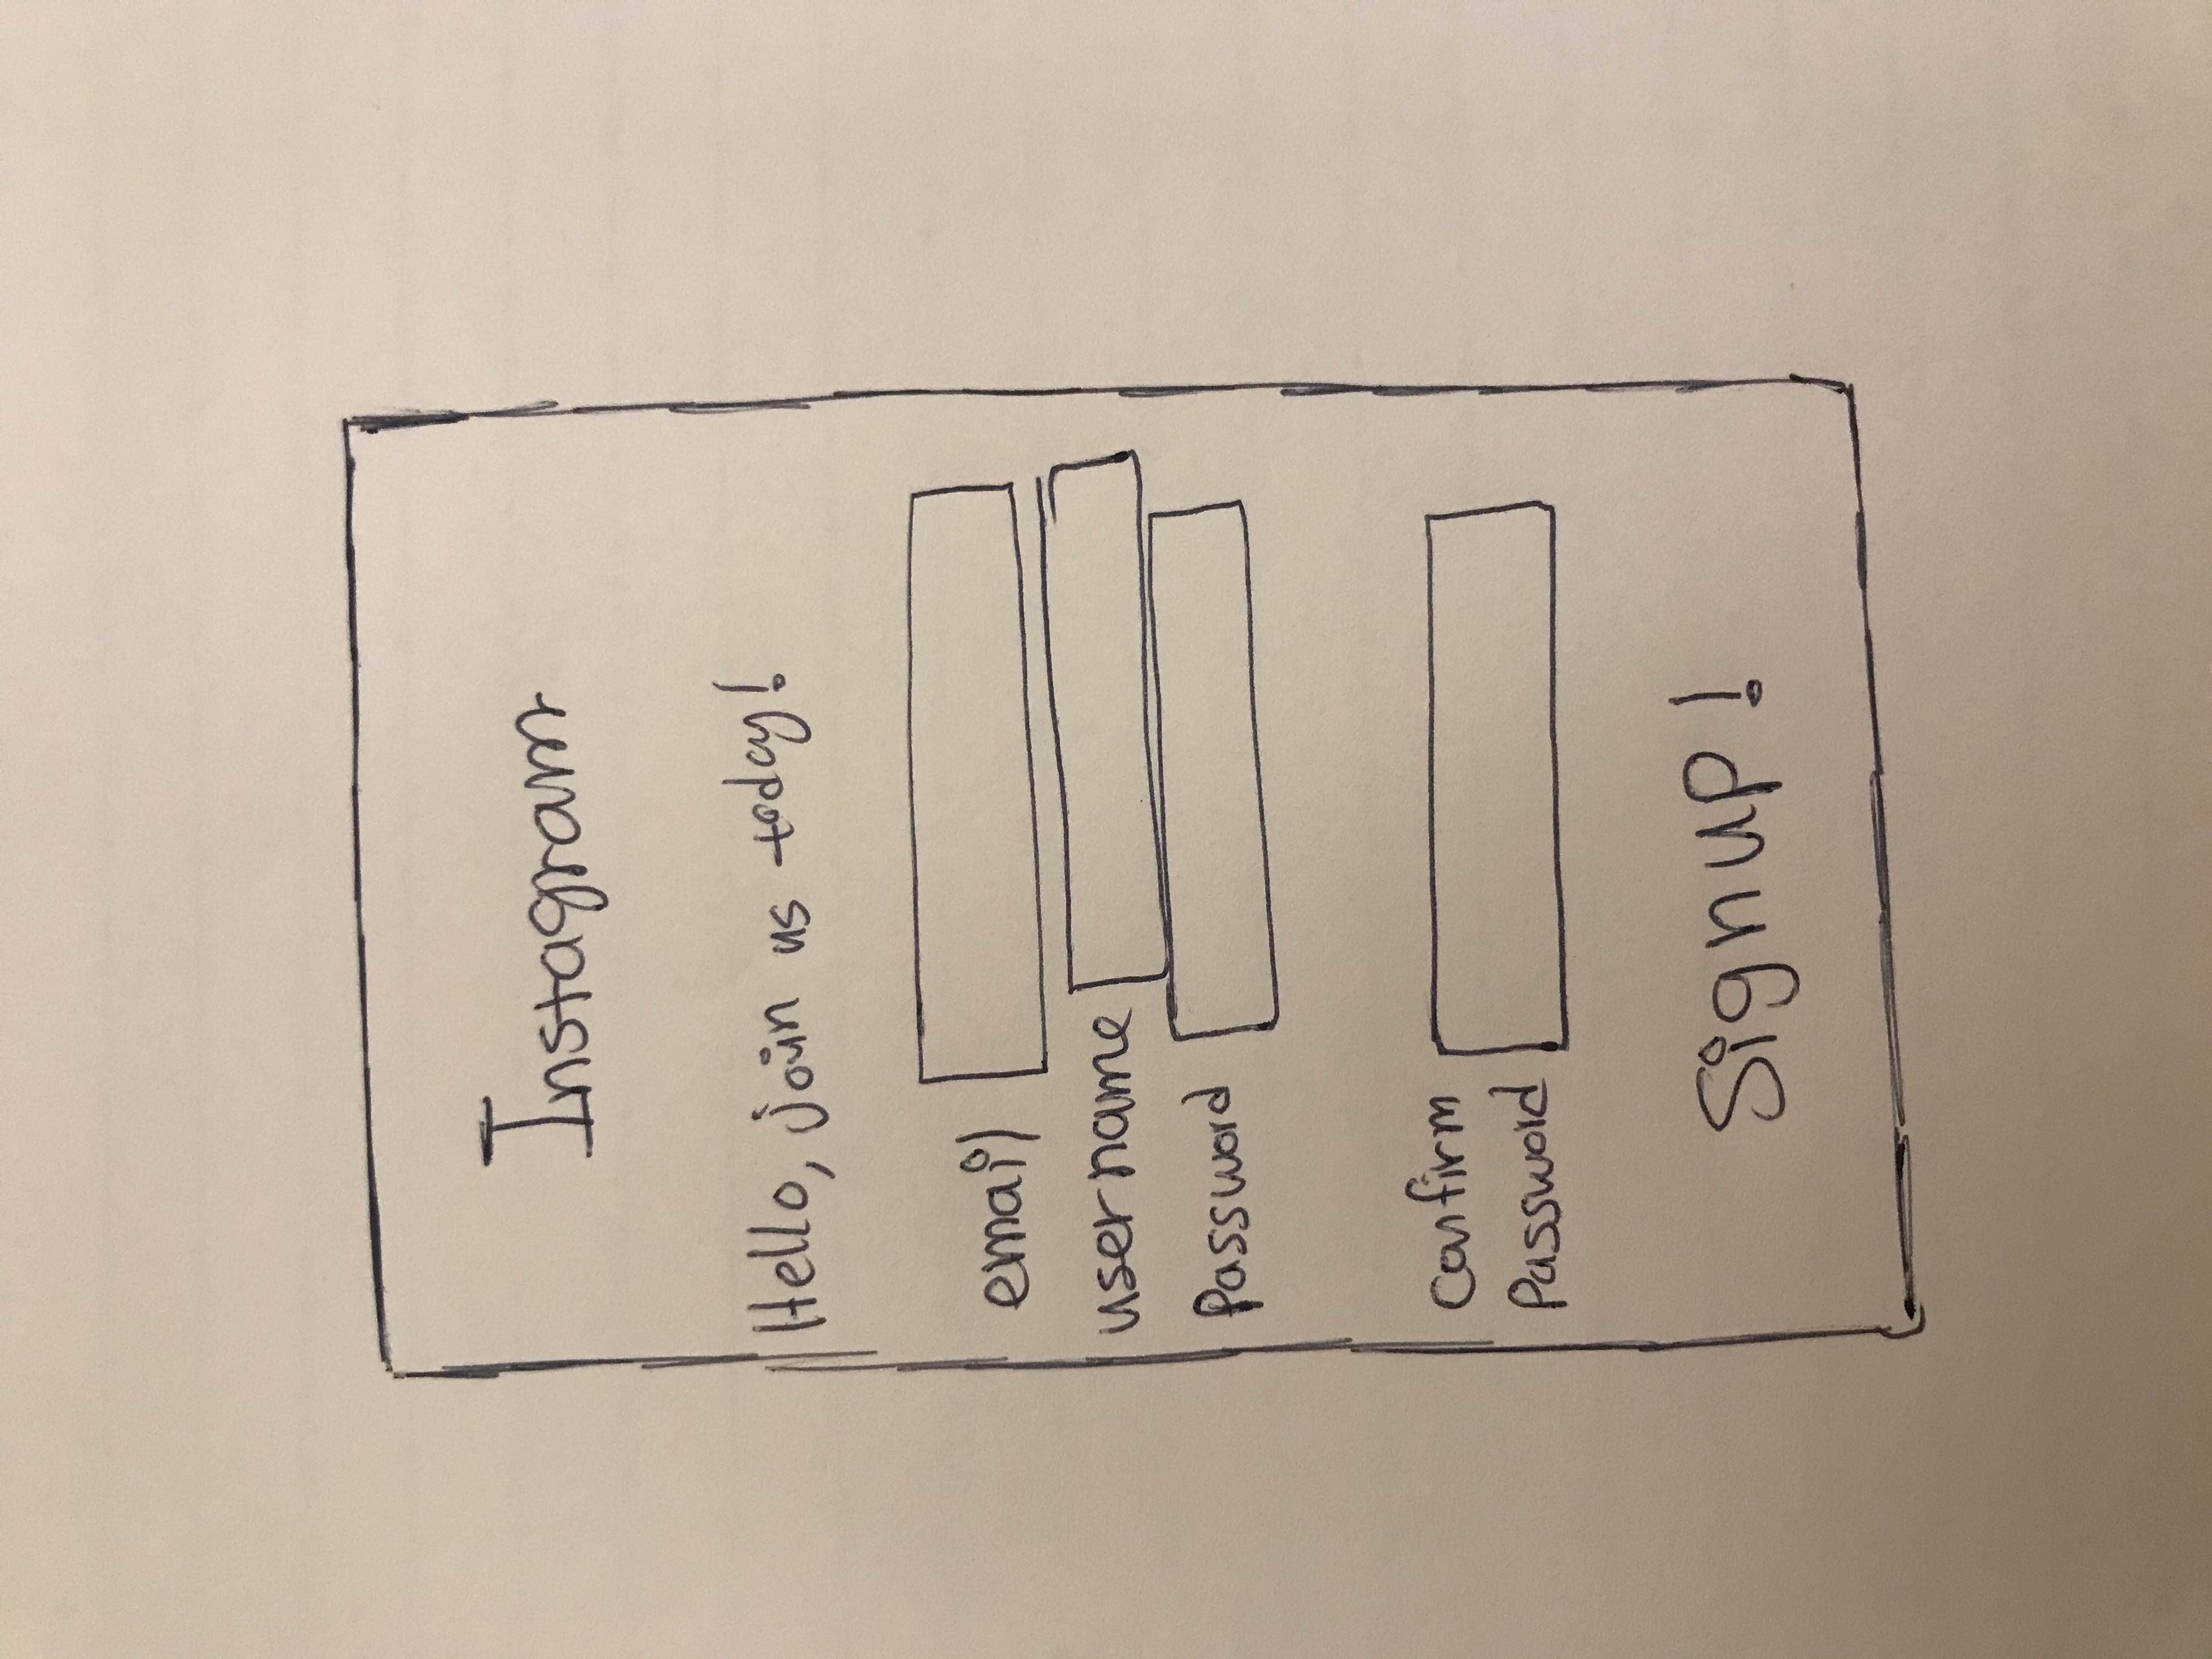 Instagram
Hello, join us today!
email
username
Password
Confirm
Password
Signup!